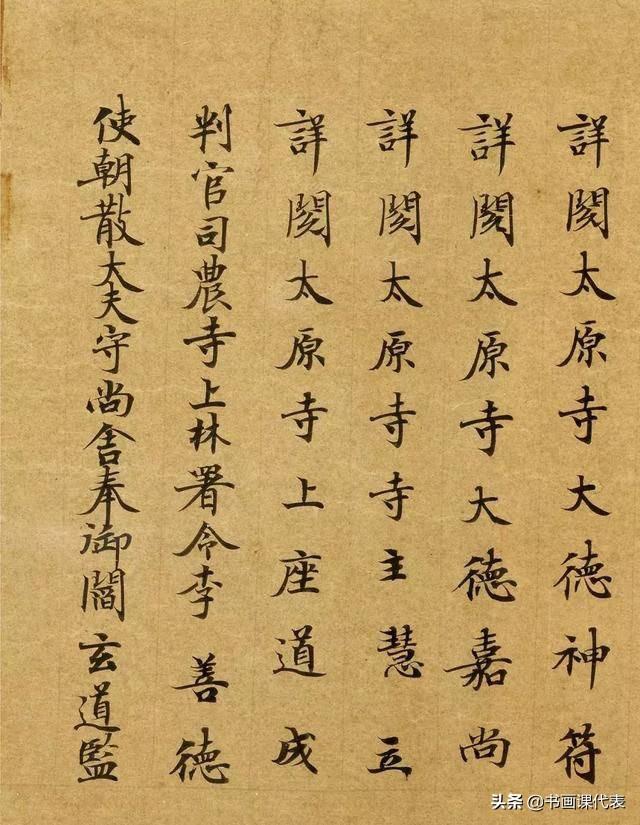 詳閱太原寺大德神符
詳閱太原寺大德嘉尚
詳閱太原寺寺主慧立
詳閱太原寺上座道成
判官司農寺上林署令李善德
使朝散大夫守尚舍奉御閻玄道監
头条 @书画课代表